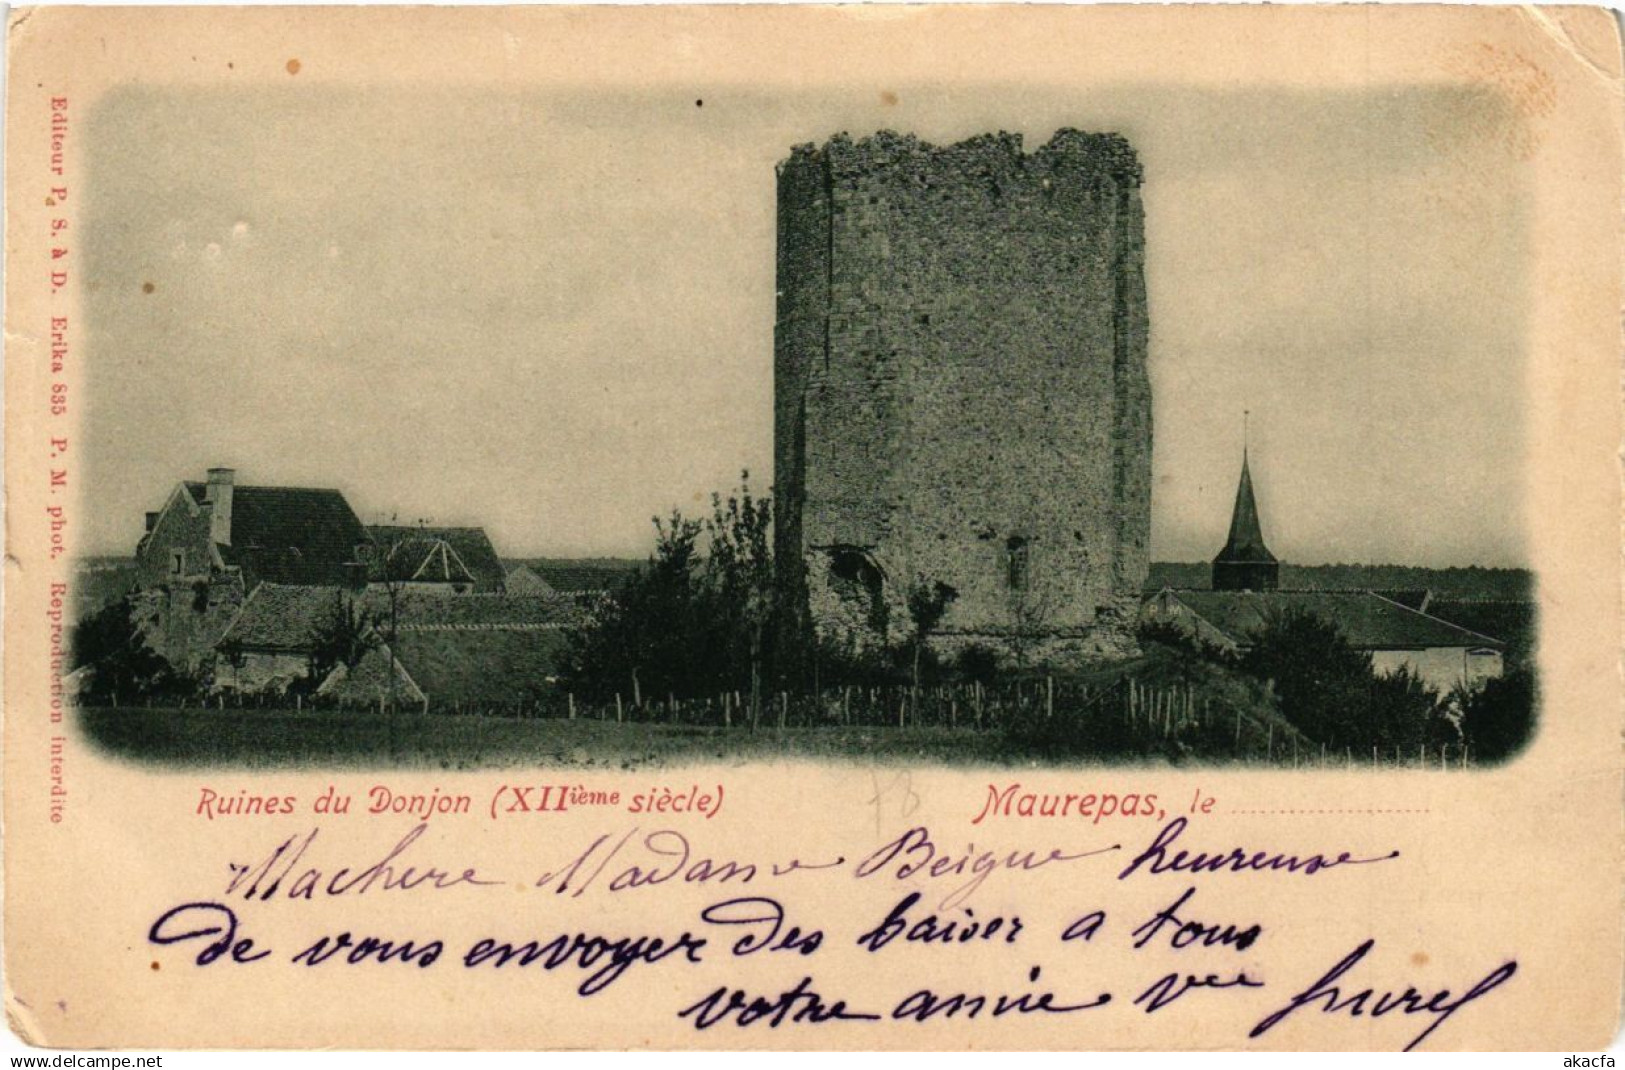 Editeur P. S. à D. Erika 835 P. M. phot. Reproduction interdite
Ruines du Donjon (XIIième siècle)
Maurepas, le
78
Machere Madame Beigue heureuse
de vous envoyer des baiser a tous
votre amie Vve
akacfa